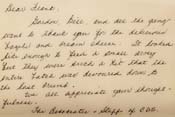 Dear Frank,
Gordon, Bill and all the gang
want to thank you for the delicious
bagels and cream cheese. It looked
like enough to feed a small army
but they were such a hit that the
entire was devoured down to
the last crumb.
We all appreciate your thought-
fulness.
The Associates & Staff of